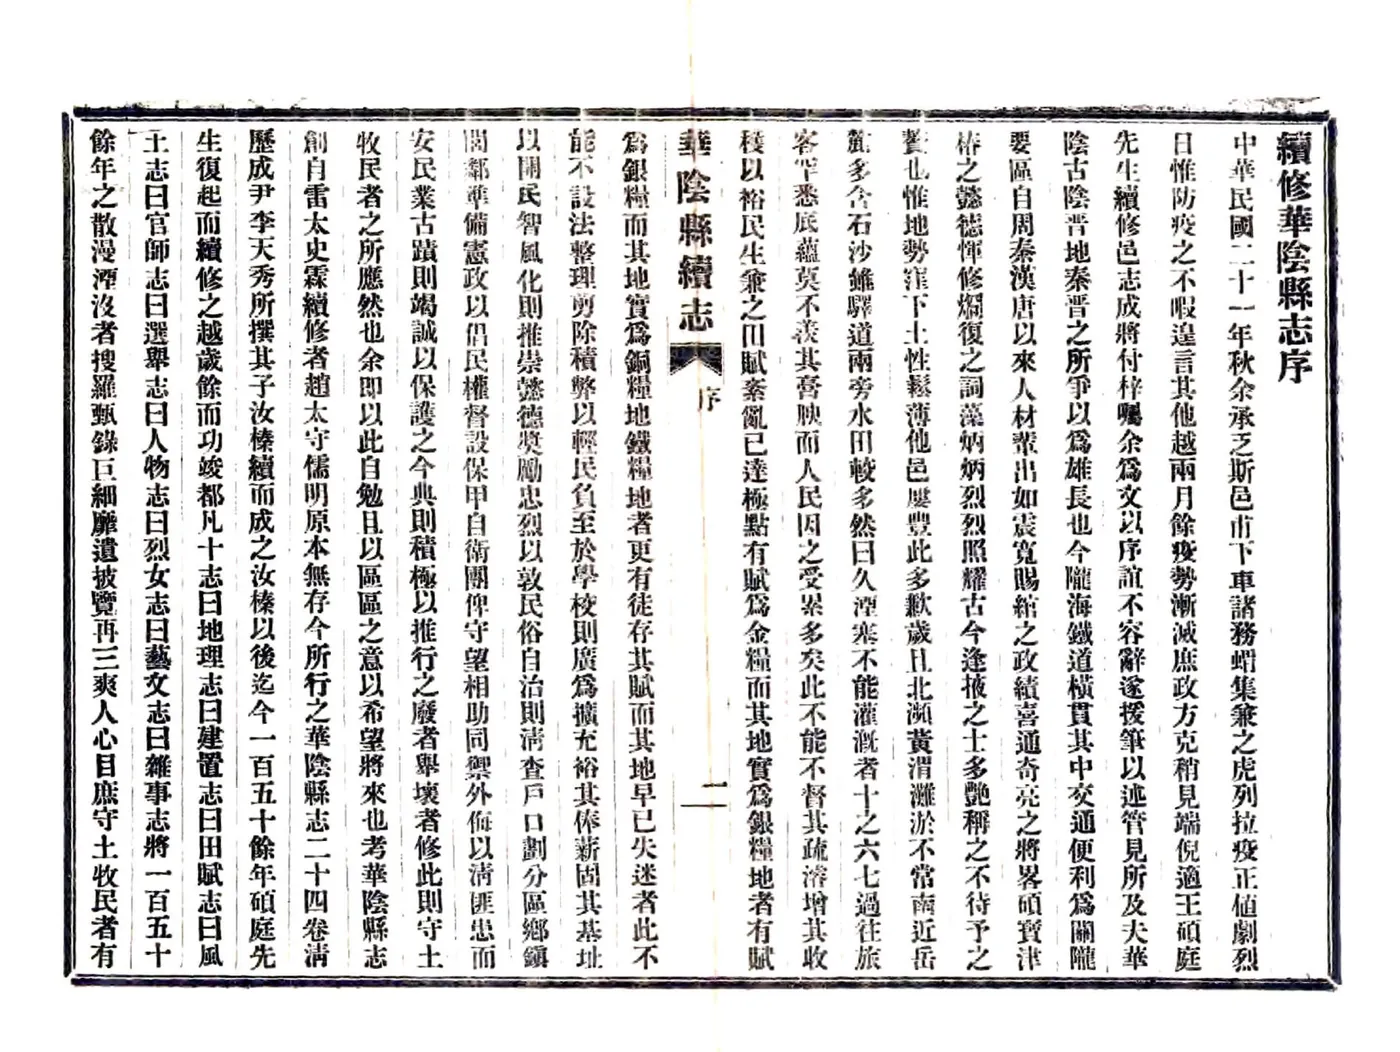 續修華陰縣志序
中華民國二十一年秋余承乏斯邑甫下車諸務蝟集兼之虎列拉疫正値劇烈
日惟防疫之不暇遑言其他越兩月餘疫勢漸滅庶政方克稍見端倪適王碩庭
先生續修邑志成將付梓囑余爲文以序誼不容辭遂援筆以述管見所及夫華
陰古陰晋地秦晋之所爭以爲雄長也今隴海鐵道橫貫其中交通便利爲關隴
要區自周秦漢唐以來人材輩出如震寬賜綰之政績喜通奇亮之將畧碩寶津
椿之懿德惲修燗復之詞藻炳炳烈烈照耀古今逢掖之士多艷稱之不待予之
贅也惟地勢窪下土性鬆薄他邑屢豐此多歉歲且北瀕黃渭灘淤不常南近岳
麓多含石沙雖驛道兩旁水田較多然日久湮塞不能灌漑者十之六七過往旅
客罕悉底蘊莫不羨其膏腴而人民因之受累多矣此不能不督其疏濬增其收
穫以裕民生兼之田賦紊亂已達極點有賦爲金糧而其地實爲銀糧地者有賦
華陰縣續志
序
一
爲銀糧而其地實爲銅糧地鐵糧地者更有徒存其賦而其地早已失迷者此不
能不設法整理剪除積弊以輕民負至於學校則廣爲擴充裕其俸薪固其基址
以開民智風化則推崇懿德奬勵忠烈以敦民俗自治則淸查戶口劃分區鄉鎭
閭鄰準備憲政以倡民權督設保甲自衛團俾守望相助同禦外侮以淸匪患而
安民業古蹟則竭誠以保護之今典則積極以推行之廢者舉壞者修此則守土
牧民者之所應然也余即以此自勉且以區區之意以希望將來也考華陰縣志
創自雷太史霖續修者趙太守儒明原本無存今所行之華陰縣志二十四卷淸
歷成尹李天秀所撰其子汝榛續而成之汝榛以後迄今一百五十餘年碩庭先
生復起而續修之越歲餘而功竣都凡十志曰地理志曰建置志曰田賦志曰風
土志曰官師志曰選舉志曰人物志曰烈女志曰藝文志曰雜事志將一百五十
餘年之散漫湮沒者搜羅甄錄巨細靡遺披覽再三爽人心目庶守土牧民者有